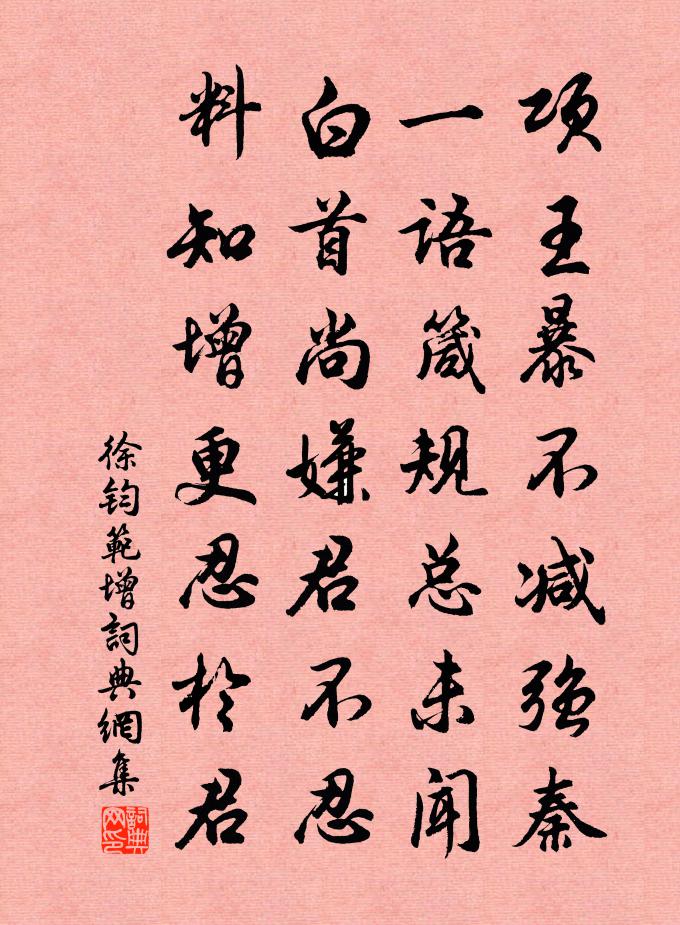 项王暴不减强秦
一语箴规总未闻
白首尚嫌君不忍
料知增更忍於君
徐鈞範增詞典網集
詞典网印